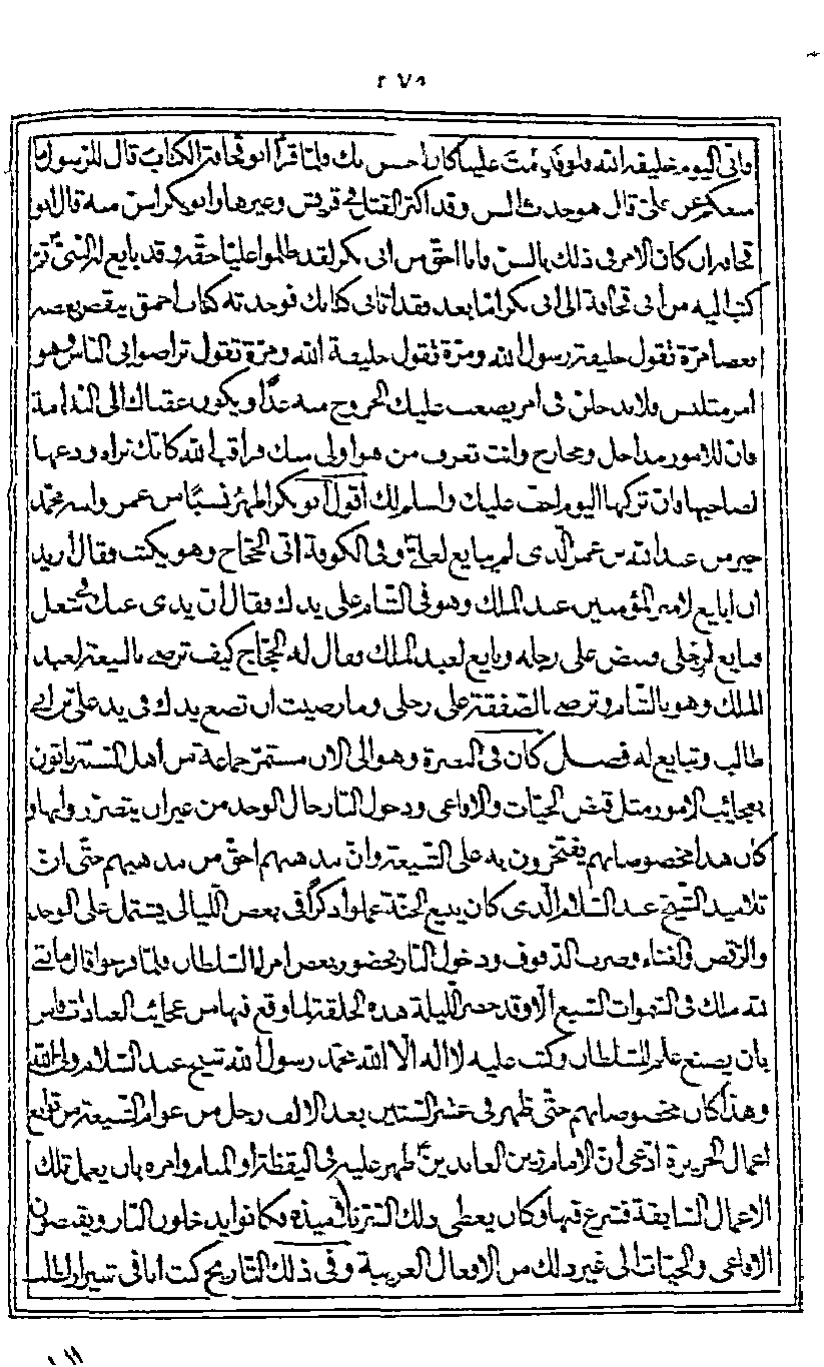 ٢٧٥
فانى اليوم خليفة الله فلو قدمت علينا كان احسن بك فلما قرأ ابو قحافة الكتاب قال للرسول ما
منعكم من على قال هو حدث السن وقد اكثر القتل فى قريش وغيرها وابو بكر اسن منه قال ابو
قحافة ان كان الامر فى ذلك بالسن فانا احق من ابى بكر لقد ظلموا عليا حقه وقد بايع له النبى ثم
كتب اليه من ابى قحافة الى ابى بكر اما بعد فقد اتانى كتابك فوجدته كتاب احمق ينقض بعضه
بعضا مرة تقول خليفة رسول الله ومرة تقول خليفة الله ومرة تقول تراضوا بى الناس وهو
امر متلبس فلا تدخلن فى امر يصعب عليك الخروج منه غدا ويكون عقباك الى الندامة
فان للامور مداخل ومخارج وانت تعرف من هو اولى منك فراقب الله كانك تراه ودعها
لصاحبها فان تركها اليوم اخف عليك واسلم لك اقول ابو بكر اطهر نسبا من عمر وابنه محمد
خير من عبد الله بن عمر الذى لم يبايع لعلى وفى الكوفة اتى الحجاج وهو يكتب فقال اريد
ان ابايع لامير المؤمنين عبد الملك وهو فى الشام على يدك فقال ان يدى عنك فى شغل
فبايع لرجلى فقبض على رجله وبايع لعبد الملك وقال له الحجاج كيف ترضى بالبيعة لعبد
الملك وهو بالشام وترضى بالصفقة على رجلى وما رضيت ان تضع يدك فى يد على بن ابى
طالب وتبايع له فصل كان فى البصرة وهو الى الان مستمر جماعة من اهل التسنن ياتون
بعجائب الامور مثل قبض الحيات والافاعى ودخول النار حال الوجد من غير ان يتضرروا بها و
كان هذا مخصوصا بهم يفتخرون به على الشيعة وان مذهبهم احق من مذهبهم حتى ان
تلاميذ الشيخ عبد السلام الذى كان يبيع الجنة عملوا ذكرا فى بعض الليالى يشتمل على الوجد
والرقص والغناء وضرب الدفوف ودخول النار بحضور بعض امراء السلطان فلما فرغوا قال ما بقى
لله ملك فى السموات السبع الا وقد حضر الليلة هذه الحلقة لما وقع فيها من عجائب العبادات فامر
بان يصنع علم للسلطان وكتب عليه لا اله الا الله محمد رسول الله شيخ عبد السلام ولى الله
وهذا كان مخصوصا بهم حتى ظهر فى عشر الستين بعد الالف رجل من عوام الشيعة من توابع
اعمال الجزيرة ادعى ان الامام زين العابدين ظهر عليه فى اليقظة او المنام وامره بان يعمل تلك
الاعمال السابقة فشرع فيها وكان يعطى ذلك السر تلاميذه فكانوا يدخلون النار ويقبضون
الافاعى والحيات الى غير ذلك من الافعال الغريبة وفى ذلك التاريخ كنت انا فى شيراز لطلب